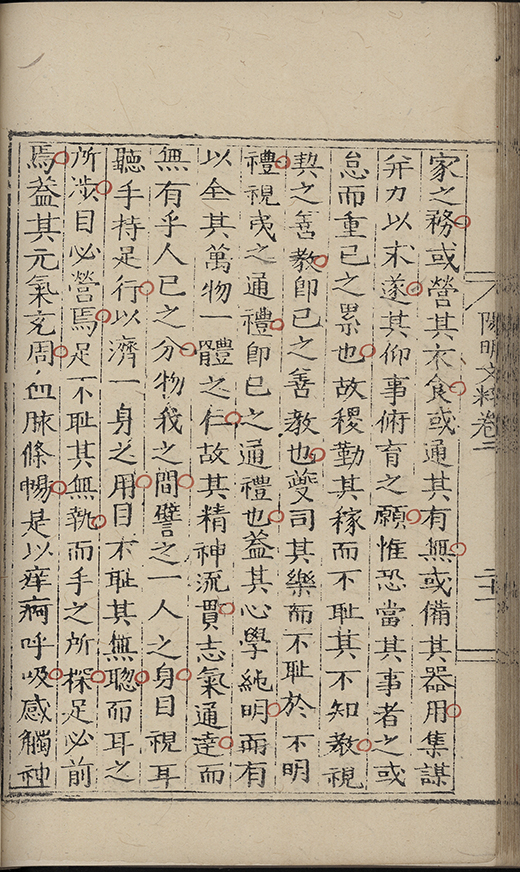 家之務或營其衣食或通其有無或備其器用集謀
并力以求遂其仰事俯育之願惟恐當其事者之或
怠而重已之累也故稷勤其稼而不耻其不知教視
契之善教卽已之善教也夔司其樂而不耻於不明
禮視夷之通禮卽已之通禮也盖其心學純明而有
以全其萬物一體之仁故其精神流貫志氣通達而
無有乎人已之分物我之間譬之一人之身目視耳
聽手持足行以濟一身之用目不耻其無聦而耳之
所涉目必營焉足不耻其無執而手之所探足必前
焉盖其元氣充周血脉條暢是以痒痾呼吸感觸神
陽明文粹卷二
二十二